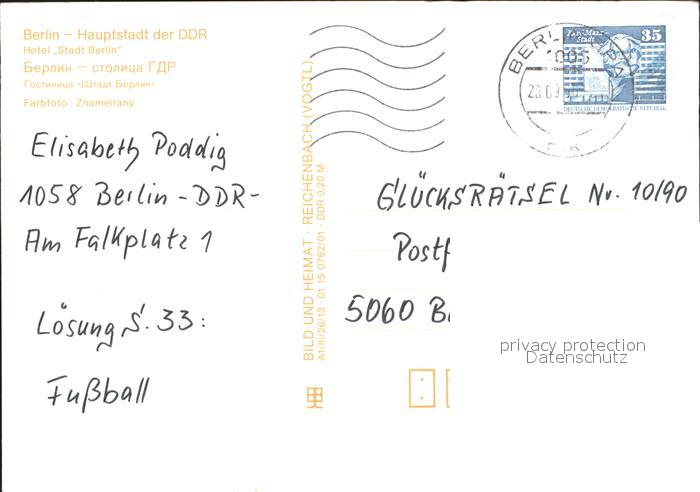 Berlin – Hauptstadt der DDR
Hotel „Stadt Berlin"
Берлин – столица ГДР
Гостиница «Штадт Берлин»
Farbfoto: Znamenany
Elisabeth Poddig
1058 Berlin -DDR-
Am Falkplatz 1
Lösung S. 33:
Fußball
BILD UND HEIMAT · REICHENBACH (VOGTL)
A1/III/26/13 · 01 15 0762/01 · DDR 0,20 M
Karl-Marx-
Stadt
35
DEUTSCHE DEMOKRATISCHE REPUBLIK
BERLIN
GLÜCKSRÄTSEL Nr. 10/90
Postf
5060 B
privacy protection
Datenschutz